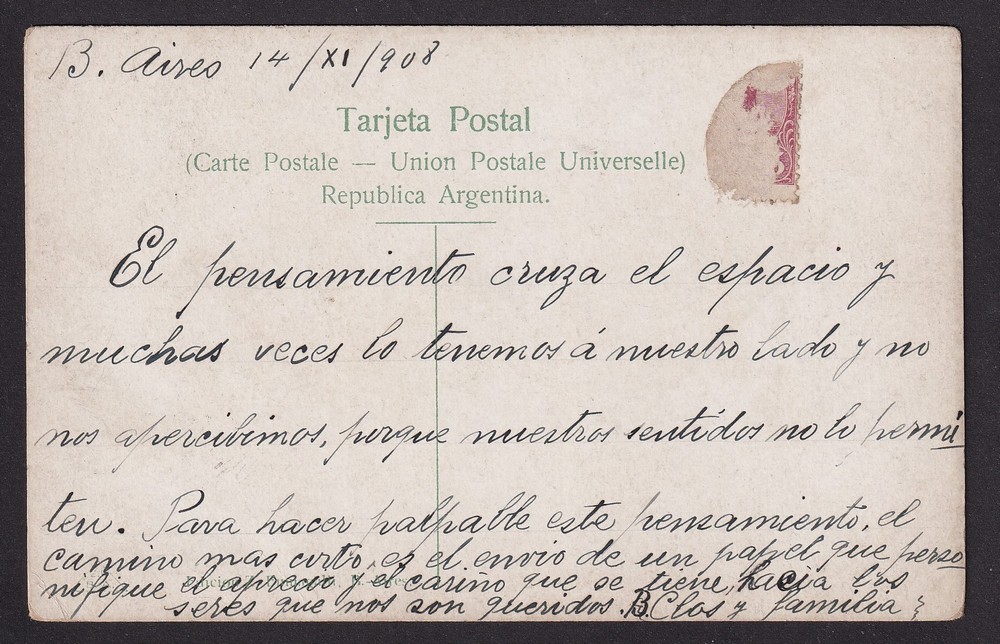 B. Aires 14/XI/908
Tarjeta Postal
(Carte Postale — Union Postale Universelle)
Republica Argentina.
El pensamiento cruza el espacio y
muchas veces lo tenemos á nuestro lado y no
nos apercibimos, porque nuestros sentidos no lo permi
ten. Para hacer palpable este pensamiento, el
camino mas corto, es el envio de un papel que perso
nifique el aprecio y el cariño que se tiene, hacia los
seres que nos son queridos. B. Clos y familia